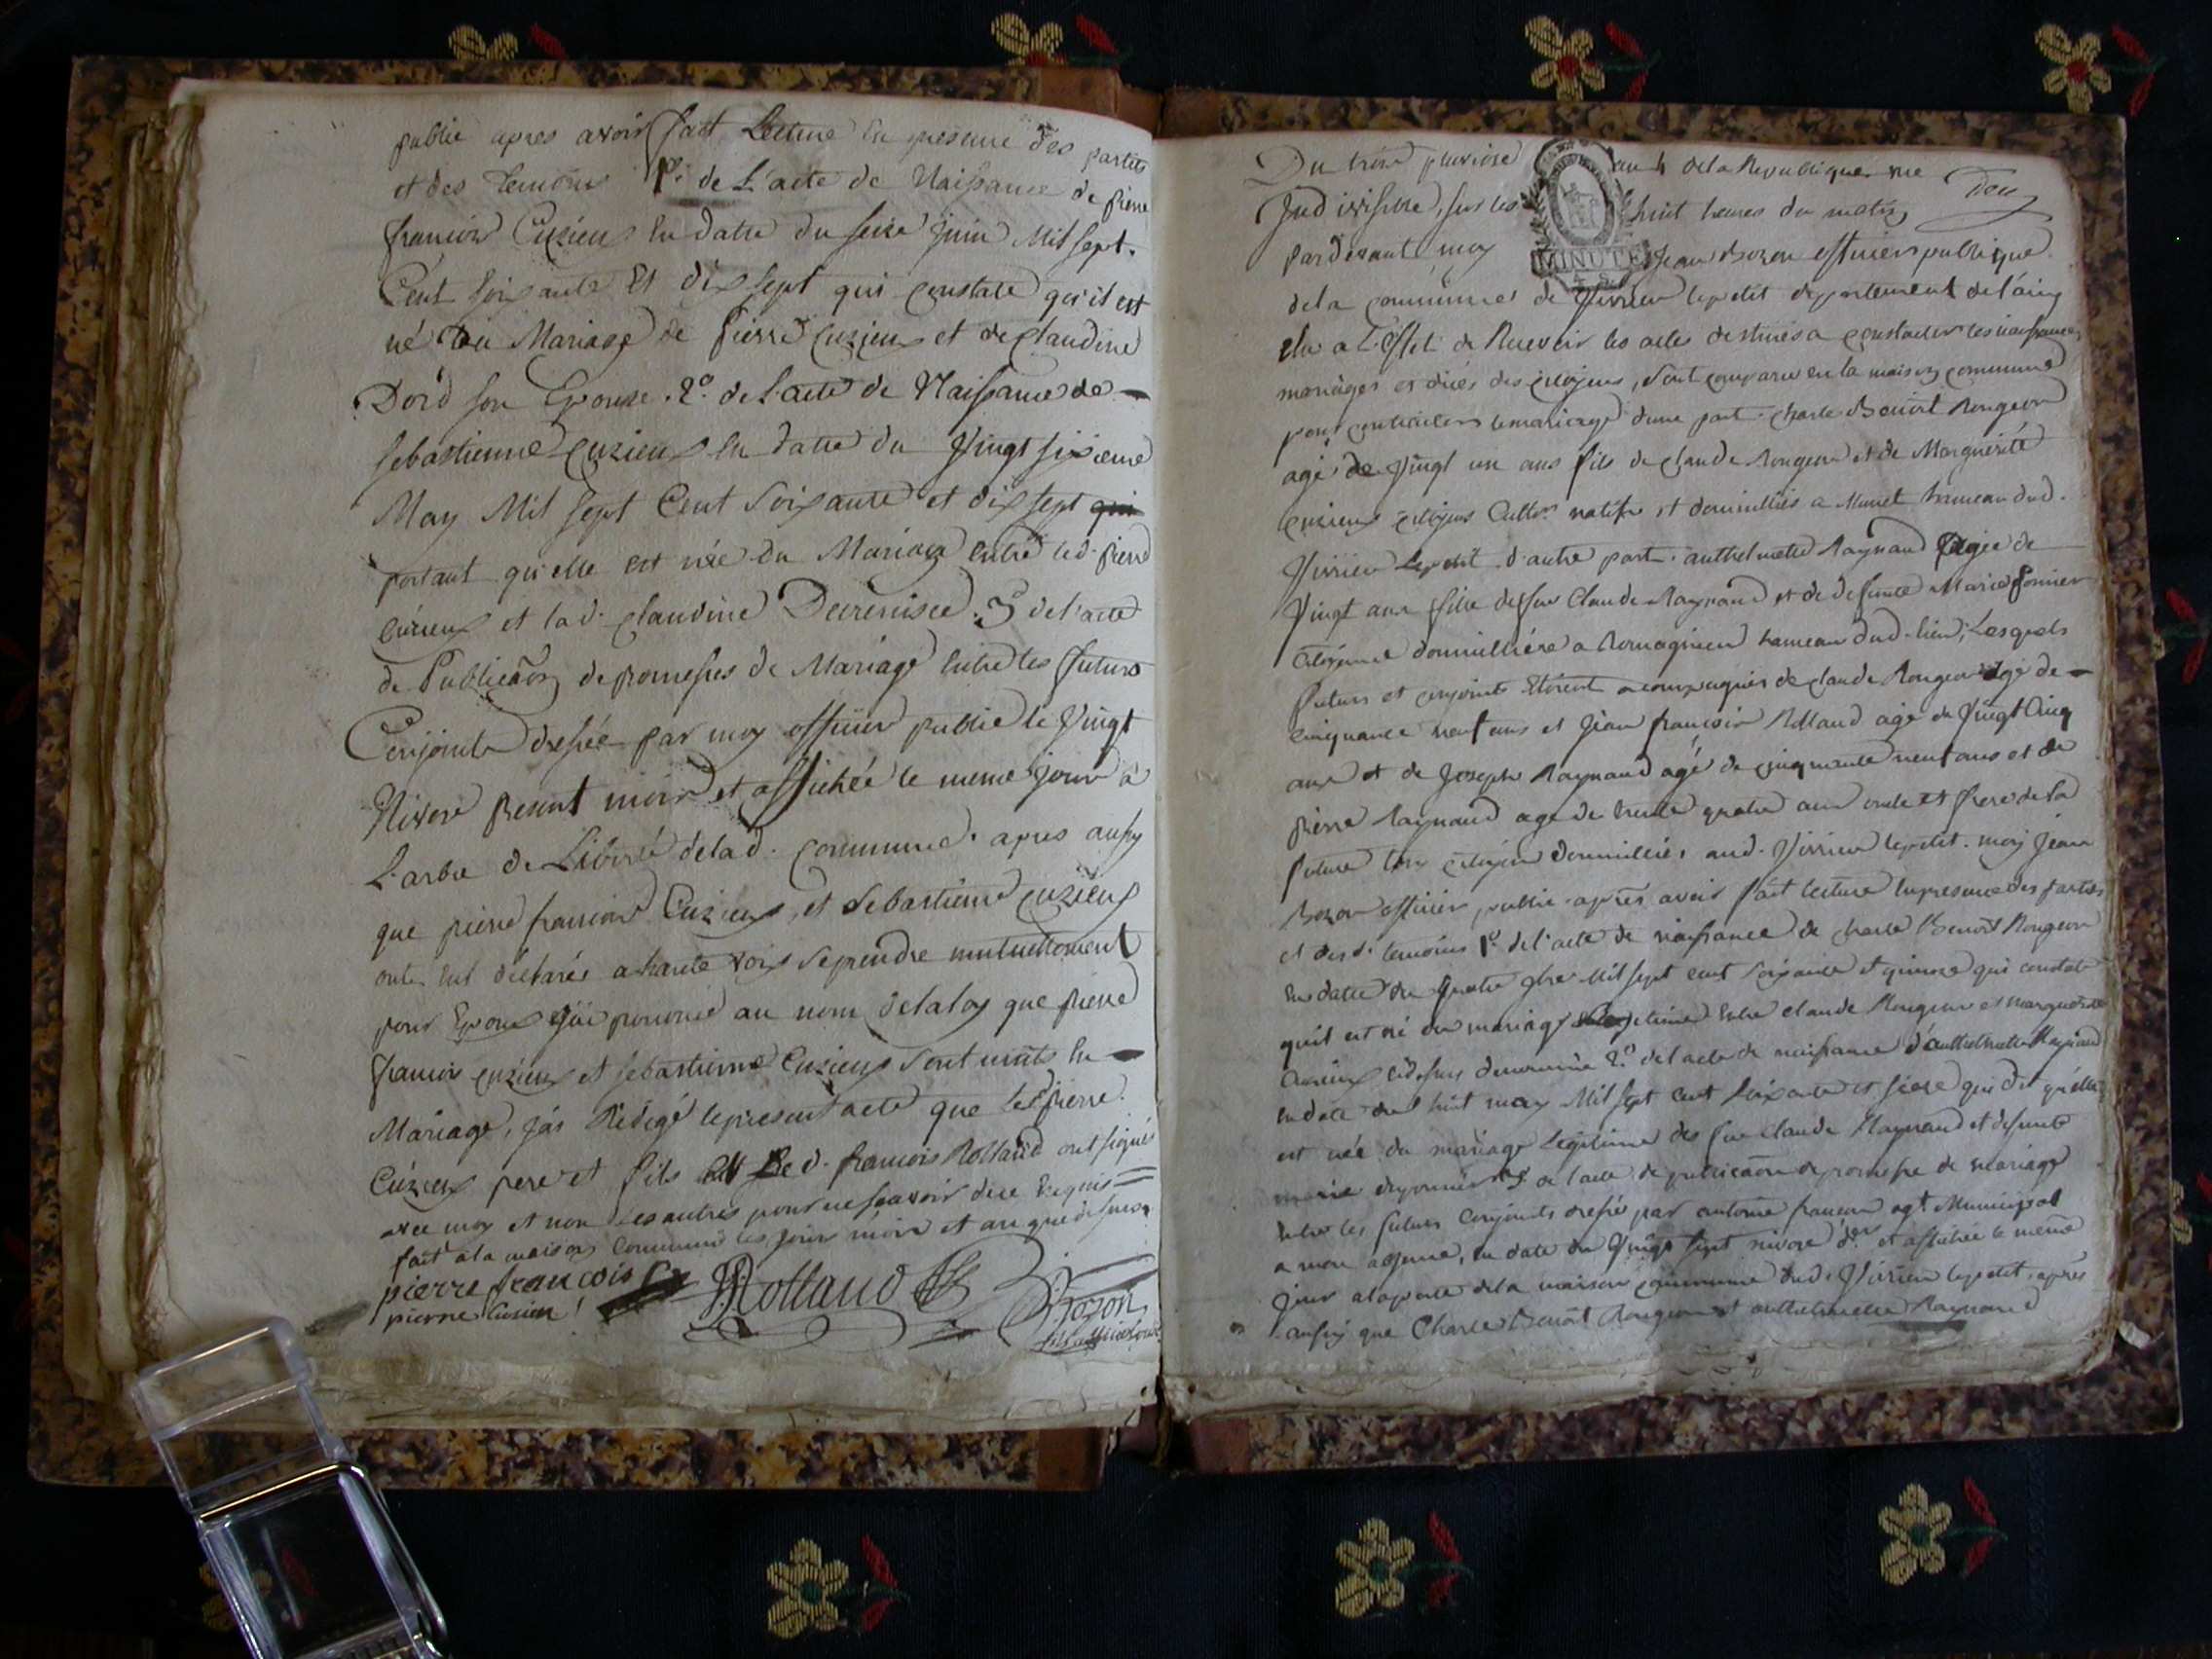 public apres avoir fait Lecture En presence des parties
et des Temoins 1º. de L'acte de Naissance de pierre
francois Cuzieux En datte du seize juin Mil sept.
Cent soixante Et dix sept qui constate qu'il est
né du Mariage de Pierre Cuzieux et de Claudine
son Epouse. 2º. de l'acte de Naissance de
sebastienne Cuzieux En datte du Vingt sixieme
May Mil sept Cent soixante et dix sept qui
portant qu'elle est née du Mariage entre led. pierre
Cuzieux et lad. Claudine 3º de l'acte
de Publicaõn de promesses de Mariage Entre les futurs
Conjoints dressée par moy officier public le Vingt
Nivose present mois et affichée le meme jour à
L'arbre de Liberté de lad. commune. apres aussy
que pierre francois Cuzieux, et Sebastienne Cuzieux
ont Eut déclarés a haute voix se prendre mutuellement
pour Epoux j'ai prononcé au nom de la loy que pierre
francois Cuzieux et sebastienne Cuzieux sont units En
Mariage, j'ai Rédigé le present acte que led. pierre
Cuzieux pere et fils et led. francois Rolland ont signés
avec moy et non Les autres pour ne scavoir de ce Enquis
fait a la maison commune les jour mois et an que dessus.
pierre francois Rolland Bozon
pierre Cusieu
Du trois pluviose an 4 de la Republique une
Indivisible, sur les huit heures du matin
pardevant moy Jean Bozon officier publique
MINUTE
de la commune de Virieu le petit departement de l'ain
elu a L'effet de Recevoir les actes destinés a constater les naissances
mariages et décés des citoyens, sont comparu en la maison commune
pour contracter le mariage d'une part. Charle Benoit Rougeon
agé de Vingt un ans fils de Claude Rougeon et de Marguerite
Cuzieux citoyens Cultrs. natifs et domiciliés a Munet hameau dud.
Virrieu Le petit d'autre part. anthelmette Raynaud agée de
Vingt ans fille de feu Claude Raynaud et de defunte Marie
Citoyenne domiciliée a Romagnieu hameau dud. lieu; Lesquels
futurs et conjoints Etoient accompagnés de Claude Rougeon agé de
cinquante neuf ans et Jean francois Rolland agé de Vingt Cinq
ans et de Joseph Raynaud agé de cinquante neuf ans et de
pierre Raynaud agé de trente quatre ans oncle et frere de la
future tous citoyens domiciliés aud. Virrieu le petit. moy Jean
Bozon officier public apres avoir fait lecture En presence des parties
et desd. temoins 1º. de l'acte de naissance de Charle Benoit Rougeon
En datte du quatre 9bre Mil sept cent soixante et quinze qui constate
qu'il est né du mariage legitime Entre Claude Rougeon et marguerite
Cuzieux cidessus denommés 2º. de l'acte de naissance d'anthelmette Raynaud
En date du huit may Mil sept cent soixante et seize qui dit qu'elle
est née du mariage Legitime des feu Claude Raynaud et defunte
marie 3º de l'acte de publicaõn de promesse de mariage
Entre les futurs Conjoints dressé par antoine francon agt. Municipal
a mon absence, En date du Vingt sept nivose der. et affichée le meme
jour a la porte de la maison commune dud. Virieu le petit, apres
aussy que Charle Benoit Rougeon et anthelmette Raynaud